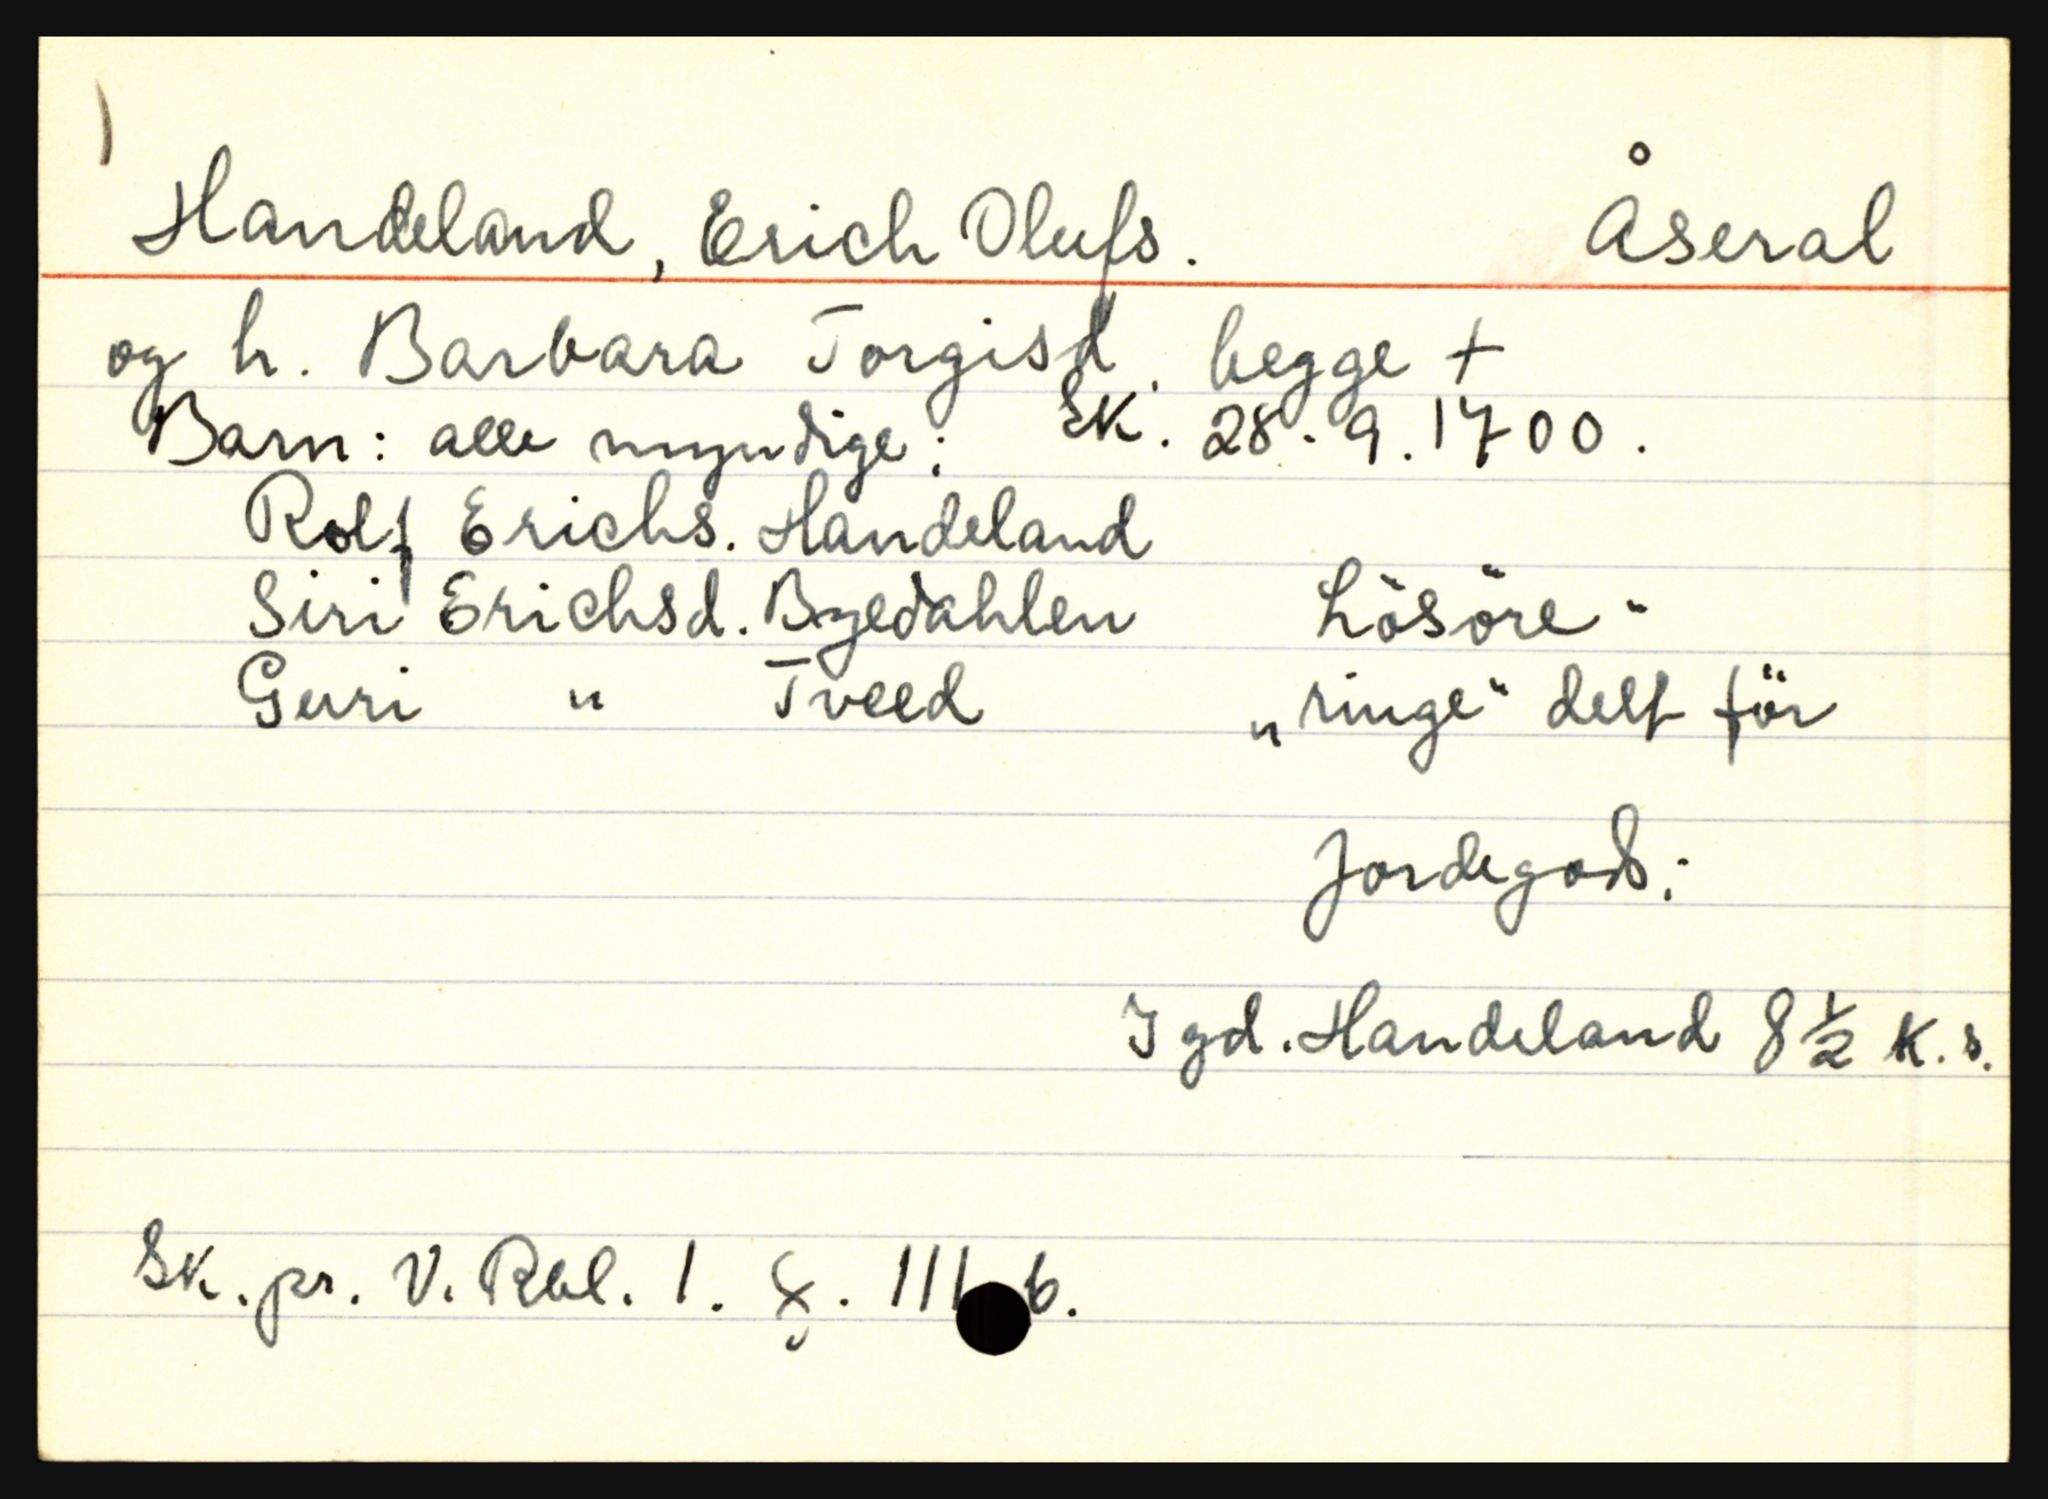 Handeland, Erich Olufs. Åseral
og h. Barbara Torgisd. begge +
Barn: alle myndige: Sk. 28.9.1700.
Rolf Erichs. Handeland
Siri Erichsd. Byedahlen Lösöre "
Guri " Tveed "ringe" delt för
Jordegods:
I gd. Handeland 8 1/2 K.s.
Sk. pr. V. Rbl. 1. 8. 111 b.